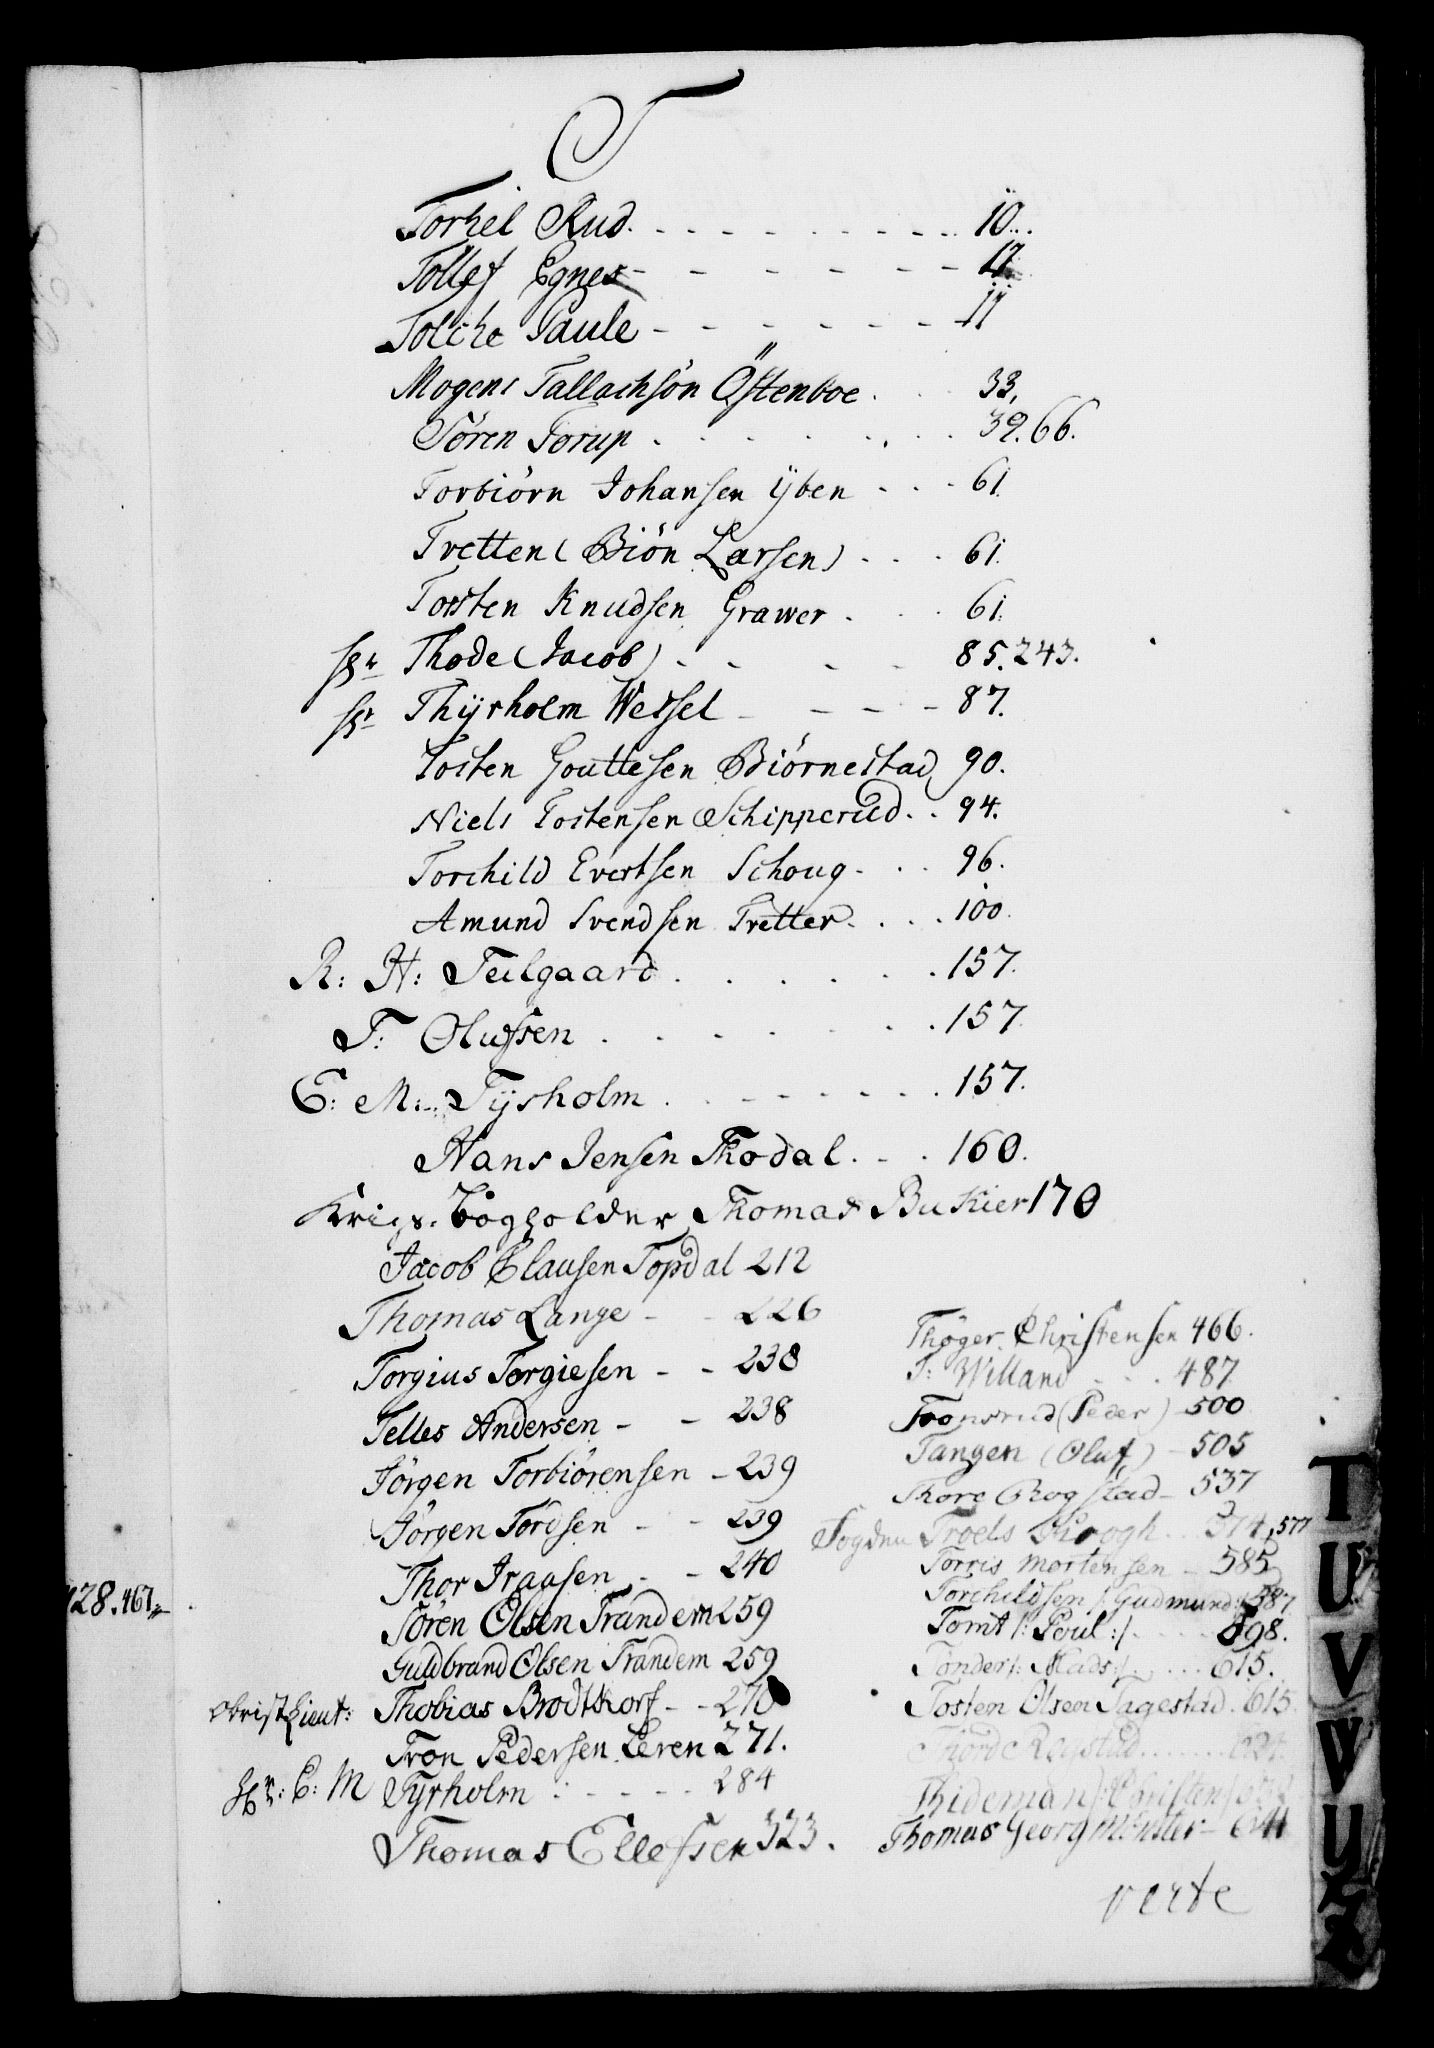 T
Torkel Rud. 10.
Tollef Egnes 17
Tolche Paule 11
Mogens Tallachsön Östenboe. 33.
Sören Torup 39. 66.
Torbiörn Johansen ÿben 61
Tretten (Biön Larsen) 61.
Torsten Knudsen Grawer. 61.
Hr. Thode (Jacob) 85. 243.
Hr. Thÿrholm Wessel 87.
Tosten Gouttesen Biörnestad 90.
Niels Tostensen Schipperud. 94.
Torchild Evertsen Schoug. 96.
Amund Svendsen Tretter. 100.
R: H: Teilgaard 157.
T: Olufsen 157.
E: M: Tÿrholm 157.
Hans Jensen Thodal. 160.
Krigs. Bogholder Thomas Bukier 170
Jacob Clausen Topdal 212
Thomas Lange 226
Torgius Torgiesen 238
Telles Andersen 238
Jörgen Torbiörensen 239
Jörgen Tordsen 239
Thor Iraasen 240
Sören Olsen Trandem 259
Guldbrand Olsen Trandem 259
Obrist Lieut: Thobias Brodtkorf 270
Tron Pedersen Leren 271.
Hr: E: M Tyrholm 284
Thomas Ellefsen 323.
Thöger Christensen 466.
T: Willand 487
Tronsrud (Peder) 500
Tangen (Oluf) 505
Thore Rogstad 537
Fogden Troels Krogh 574, 577
Torris Mortensen 585
Torchildsen /: Gudmund :/ 587
Tomt /: Poul :/ 598.
Tönder /: Mads :/ 615.
Tosten Olsen Tagestad. 615
Thideman /: Christen
Thomas Georg Münster 641
verte
128. 467.
T
U
V
W
Y
Z